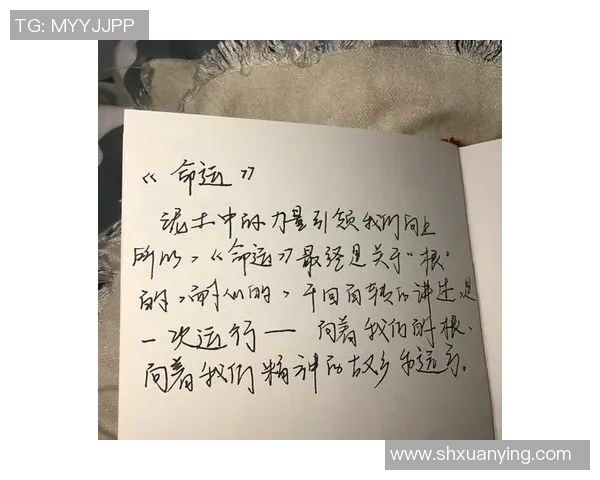 TG: MYYJJPP
《命运》
泥土中的力量引领我们向上
所以，《命运》最终是关于“根”
的，耐人的，千回百转的讲述，是
一次运行—向着我们的根、
向着我们精神的故乡的运行。
www.shxuanying.com